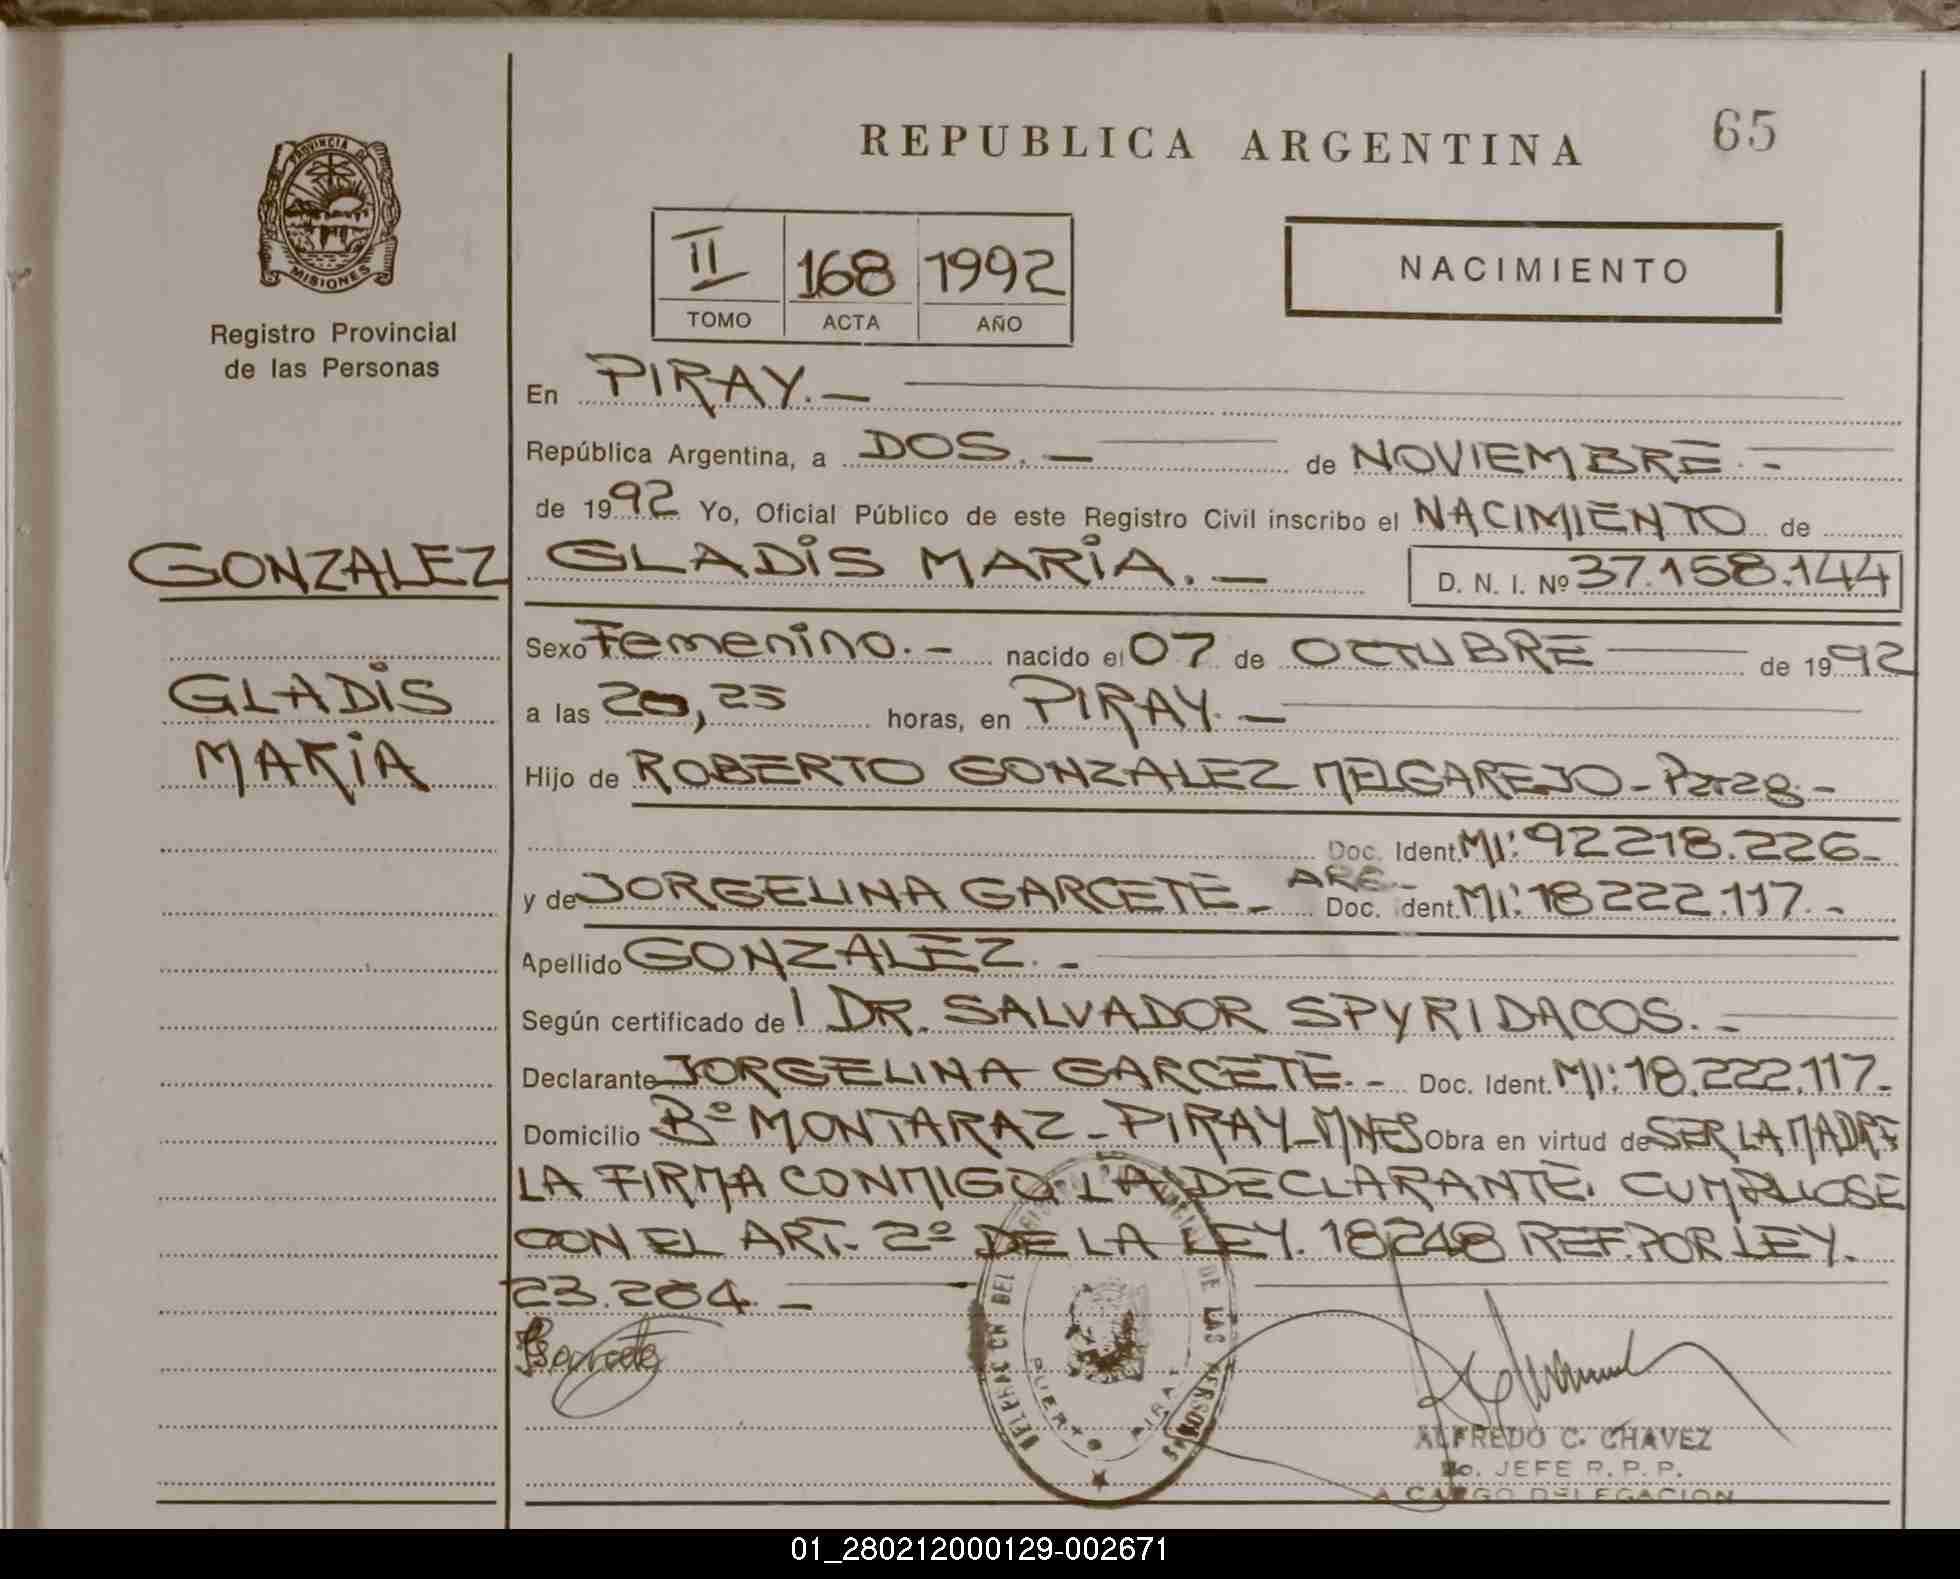 REPUBLICA ARGENTINA
65
PROVINCIA DE
MISIONES
Registro Provincial
de las Personas
II 168 1992
TOMO ACTA AÑO
NACIMIENTO
En PIRAY.—
República Argentina, a DOS.— de NOVIEMBRE.-
de 1992 Yo, Oficial Público de este Registro Civil inscribo el NACIMIENTO de
GONZALEZ
GLADIS MARIA.—
D. N. I. Nº 37.158.144
GLADIS
MARIA
Sexo Femenino.- nacido el 07 de OCTUBRE de 1992
a las 20,25 horas, en PIRAY.—
Hijo de ROBERTO GONZALEZ MELGAREJO-
Doc. Ident. MI: 92218.226-
y de JORGELINA GARCETE- ARG.- Doc. Ident. MI: 18222.117.-
Apellido GONZALEZ.-
Según certificado del DR. SALVADOR SPYRIDACOS.-
Declarante JORGELINA GARCETE.- Doc. Ident. MI: 18.222.117.-
Domicilio Bº MONTARAZ-PIRAY-MNES Obra en virtud de SER LA MADRE
LA FIRMA CONMIGO LA DECLARANTE. CUMPLIOSE
CON EL ART. 2º DE LA LEY. 18248 REF. POR LEY.
23.264.—
DELEGACION DEL DE LAS PERSONAS
PUERTO PIRAY
ALFREDO C. CHAVEZ
2o. JEFE R. P. P.
A CARGO DELEGACION
01_280212000129-002671